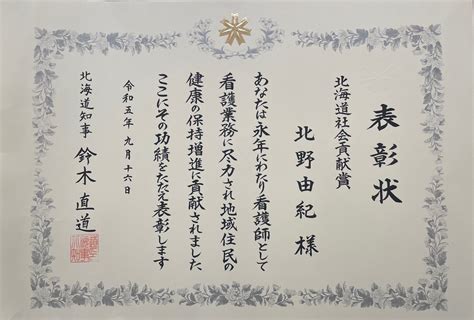 表彰状
北海道社会貢献賞
北野由紀 様
あなたは永年にわたり看護師として
看護業務に尽力され地域住民の
健康の保持増進に貢献されました
ここにその功績をたたえ表彰します
令和五年九月十六日
北海道知事 鈴木直道